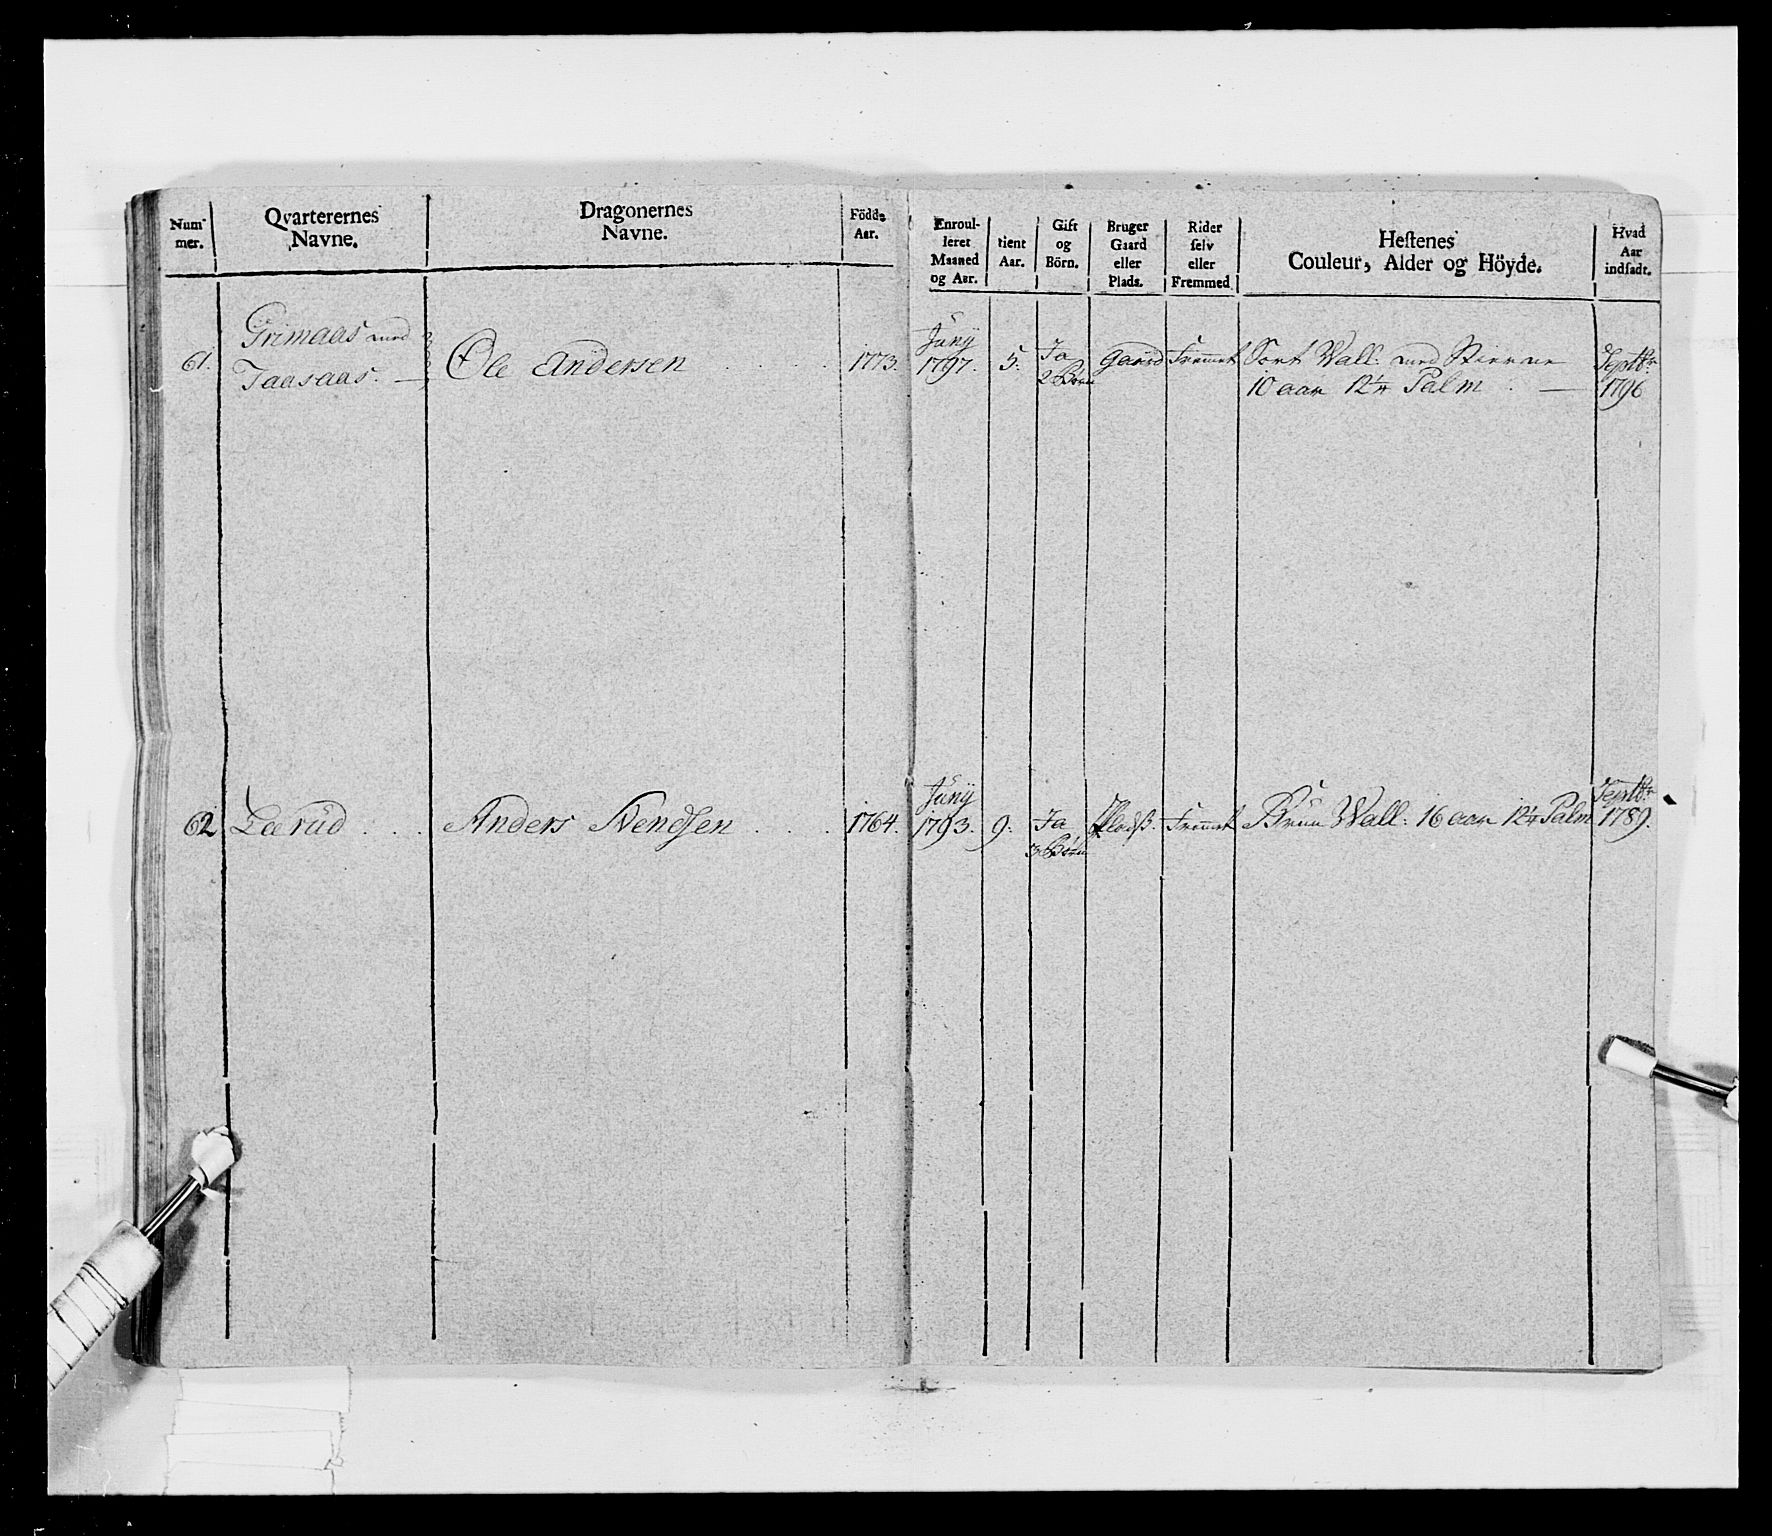 Num-
mer.
Qvarterernes
Navne.
Dragonernes
Navne.
Födde
Aar.
Enroul-
leret
Maaned
og Aar.
tient
Aar.
Gift
og
Börn.
Bruger
Gaard
eller
Plads.
Rider
selv
eller
Fremmed
Hestenes
Couleur, Alder og Höyde.
Hvad
Aar
indsadt.
61.
Grimaas med
Taasaas.
Ole Andersen
1773.
Juny
1797.
5.
Ja
2 Börn
Gaard
Fremet
Sort Vall: med Stierne
10 aar 12¼ Palm
Septbr
1796
62
Lærud
Anders
1764.
Juny
1793.
9.
Ja
3 Börn
Pladß.
Fremet
Brun Wall: 16 aar 12¼ Palm
Septbr
1789.